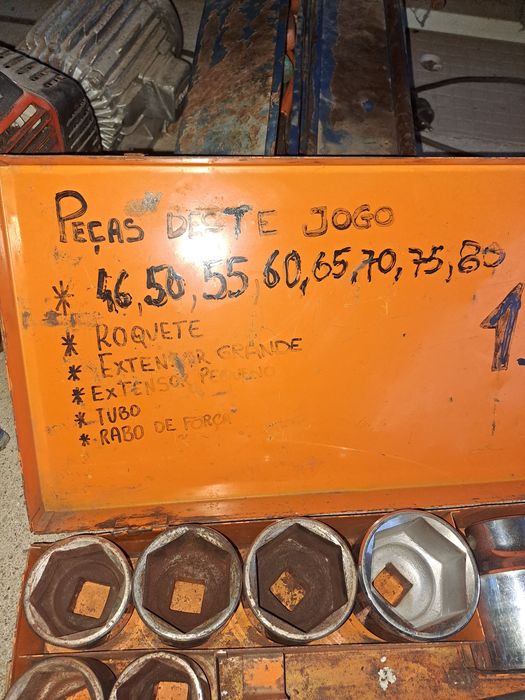 PEÇAS DESTE JOGO
* 46,50,55,60,65,70,75,80
* ROQUETE
* EXTENSOR GRANDE
* EXTENSOR PEQUENO
* TUBO
* RABO DE FORÇA